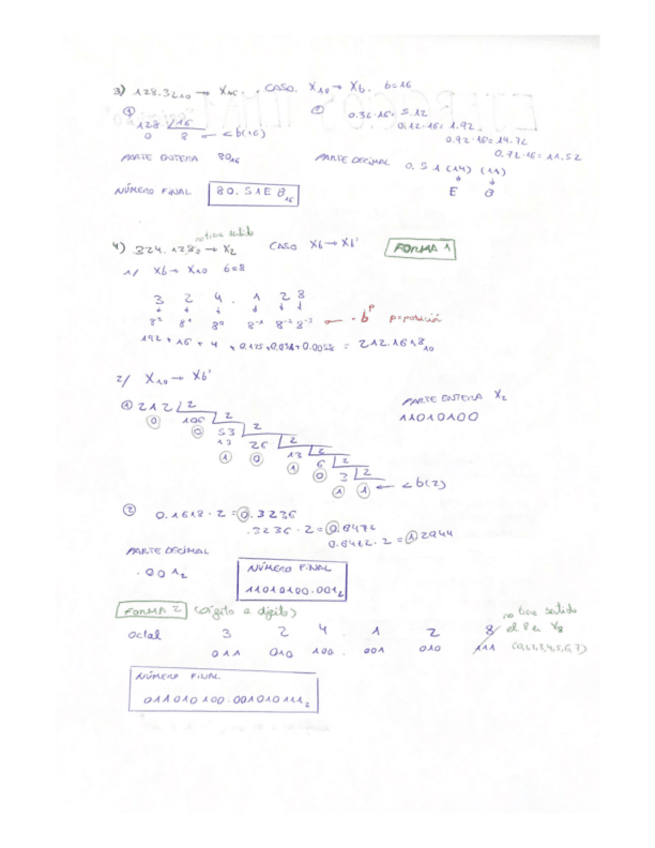 3) 128.32₁₀ → X₁₆. CASO. X₁₀ → Xb. b=16
① 128 / 16
0 8 ← <b(16)
② 0.32·16= 5.12
0.12·16= 1.92
0.92·16= 14.72
0.72·16= 11.52
PARTE ENTERA 80₁₆
PARTE DECIMAL 0. 5 1 (14) (11)
E B
NÚMERO FINAL 80.51E B₁₆
no tiene sentido
4) 324.128₈ → X₂ CASO Xb → Xb' FORMA 1
1/ Xb → X₁₀ b=8
3 2 4 . 1 2 8
8² 8¹ 8⁰ 8⁻¹ 8⁻² 8⁻³ ← · bᵖ p=posición
192 + 16 + 4 + 0.125+0.031+0.0058 = 212.1618₁₀
2/ X₁₀ → Xb'
① 212 / 2
0 106 / 2
0 53 / 2
13
1 26 / 2
0 13 / 2
1 6 / 2
0 3 / 2
1 1 ← <b(2)
PARTE ENTERA X₂
11010100
② 0.1618 · 2 = 0.3236
.3236 · 2 = 0.6472
0.6472 · 2 = 1.2944
PARTE DECIMAL
.001₂
NÚMERO FINAL
11010100.001₂
FORMA 2 (dígito a dígito)
no tiene sentido
el 8 en X₈
(0,1,2,3,4,5,6,7)
octal 3 2 4 . 1 2 8
011 010 100 . 001 010 111
NÚMERO FINAL
011010100.001010111₂